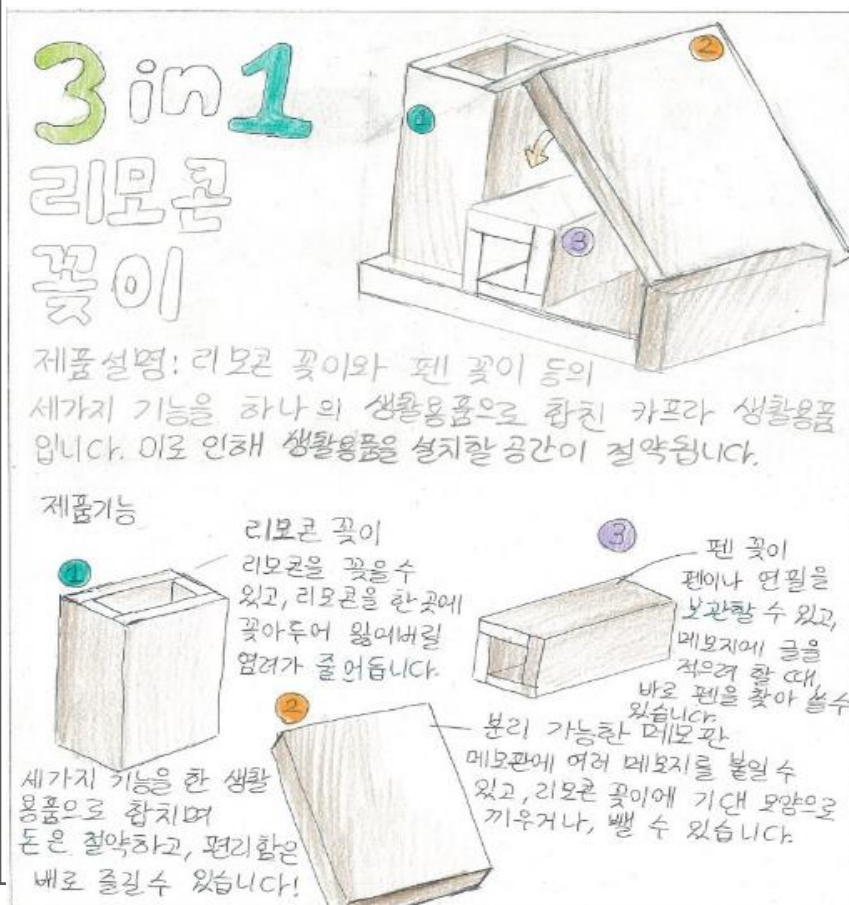 3 in 1
리모콘
꽂이
1
2
3
제품설명: 리모콘 꽂이와 펜 꽂이 등의
세가지 기능을 하나의 생활용품으로 합친 카프라 생활용품
입니다. 이로 인해 생활용품을 설치할 공간이 절약됩니다.
제품기능
1
리모콘 꽂이
리모콘을 꽂을 수
있고, 리모콘을 한 곳에
꽂아두어 잃어버릴
염려가 줄어듭니다.
3
펜 꽂이
펜이나 연필을
보관할 수 있고,
메모지에 글을
적으려 할 때,
바로 펜을 찾아 쓸 수
있습니다.
2
분리 가능한 메모판
메모판에 여러 메모지를 붙일 수
있고, 리모콘 꽂이에 기댄 모양으로
끼우거나, 뺄 수 있습니다.
세가지 기능을 한 생활
용품으로 합치며
돈은 절약하고, 편리함은
배로 즐길 수 있습니다!